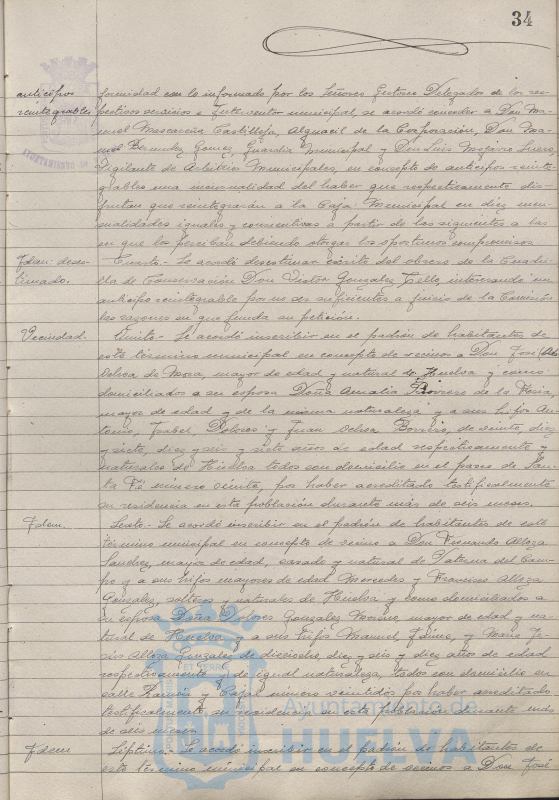 34
anticipos
reintegrables
formidad con lo informado por los Señores Gestores Delegados de los res-
pectivos servicios e Interventor municipal, se acordó conceder a Don Ma-
nuel Mascareña Castilleja, Alguacil de la Corporación, Don Ma-
nuel Bermudez Gomez, Guardia Municipal y Don Luis
Vigilante de Arbitrios Municipales, en concepto de anticipos reinte-
grables una mensualidad del haber que respectivamente dis-
frutan que reintegrarán a la Caja Municipal en diez men-
sualidades iguales y consecutivas a partir de las siguientes a las
en que los perciban debiendo otorgar los oportunos compromisos.
Idem deses-
timado.
Cuarto.- Se acordó desestimar escrito del obrero de la Cuadri-
lla de Conservación Don Victor Gonzalez Tello, interesando un
anticipo reintegrable por no ser suficientes a juicio de la Comisión
las razones en que funda su petición.
Vecindad.
Quinto.- Se acordó inscribir en el padrón de habitantes de
este término municipal en concepto de vecinos a Don José
Ochoa de Mora, mayor de edad y natural de Huelva y como
domiciliados a su esposa Doña Amalia Borrero de la Feria,
mayor de edad y de la misma naturaleza y a sus hijos An-
tonio, Isabel, Dolores y Juan Ochoa Borrero, de veinte, diez
y siete, diez y seis y siete años de edad respectivamente y
naturales de Huelva todos con domicilio en el paseo de San-
ta Fé número veinte, por haber acreditado testificalmente
su residencia en esta población durante más de seis meses.
Idem.
Sexto.- Se acordó inscribir en el padrón de habitantes de este
término municipal en concepto de vecino a Don Fernando Alloza
Sanchez, mayor de edad, casado y natural de Paterna del Cam-
po y a sus hijos mayores de edad Mercedes y Francisco Alloza
Gonzalez, solteros y naturales de Huelva y como domiciliados a
su esposa Doña Dolores Gonzalez Moreno, mayor de edad y na-
tural de Huelva y a sus hijos Manuel, Jaime, y Maria Je-
sús Alloza Gonzalez de dieciocho, diez y seis y diez años de edad
respectivamente y de igual naturaleza, todos con domicilio en
calle Ramón y Cajal número veintidos por haber acreditado
testificalmente su residencia en esta población durante más
de seis meses.
Idem
Séptimo.- Se acordó inscribir en el padrón de habitantes de
este término municipal en concepto de vecinos a Don José
Ayuntamiento de
HUELVA